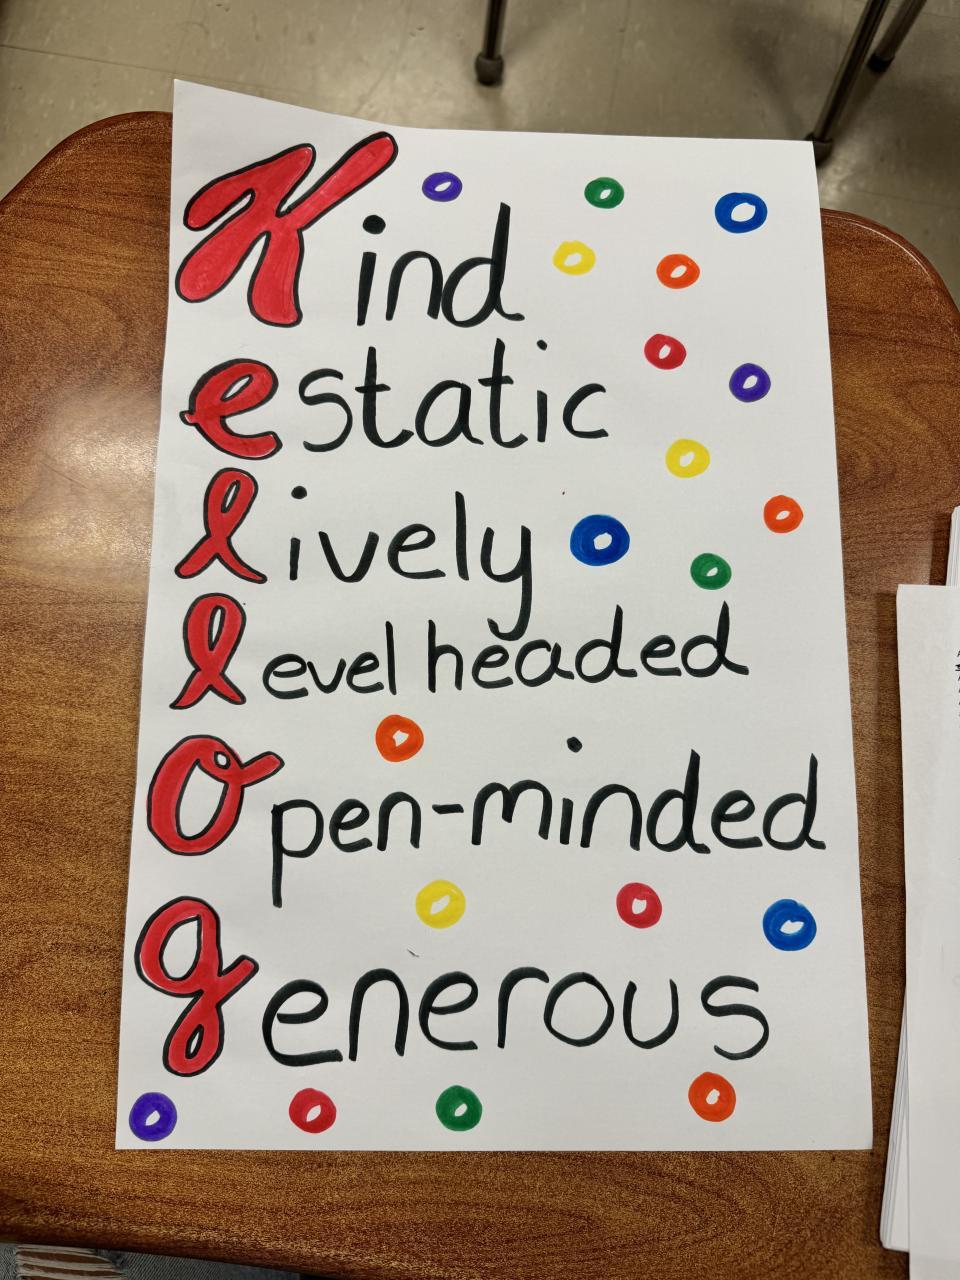 Kind
estatic
lively
level headed
Open-minded
generous